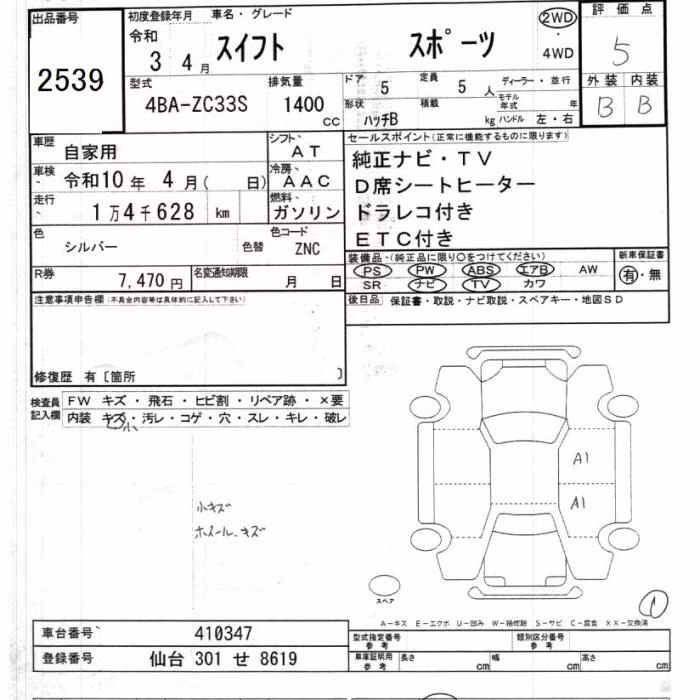 出品番号
2539
初度登録年月 車名・グレード
令和 3 4月 スイフト スポーツ
2WD
4WD
評価点
5
型式 排気量
4BA-ZC33S 1400 CC
ドア 5 定員 5人 ディーラー・並行
モデル年式 年
形状 ハッチB 積載 kg ハンドル 左・右
外装 内装
B B
車歴 自家用
シフト AT
車検 令和10年 4月( 日)
冷房 AAC
走行 1万4千628 km
燃料 ガソリン
色 シルバー 色替
色コード ZNC
R券 7,470円
名変通知期限 月 日
セールスポイント(正常に機能するものに限ります)
純正ナビ・TV
D席シートヒーター
ドラレコ付き
ETC付き
装備品・(純正品に限り○をつけてください)
PS PW ABS エアB AW
SR ナビ TV カワ
新車保証書
有・無
後日品 保証書・取説・ナビ取説・スペアキー・地図SD
注意事項申告欄(不具合内容等は具体的に記入して下さい)
修復歴 有〔箇所 〕
検査員記入欄
FW キズ・飛石・ヒビ割・リペア跡・×要
内装 キズ・汚レ・コゲ・穴・スレ・キレ・破レ
小
小キズ
ホイール、キズ
A1
A1
スペア
1
A-キズ E-エクボ U-凹み W-補修跡 S-サビ C-腐食 XX-交換済
車台番号 410347
登録番号 仙台 301 せ 8619
型式指定番号 参考
類別区分番号 参考
車庫証明用 参考 長さ cm 幅 cm 高さ cm